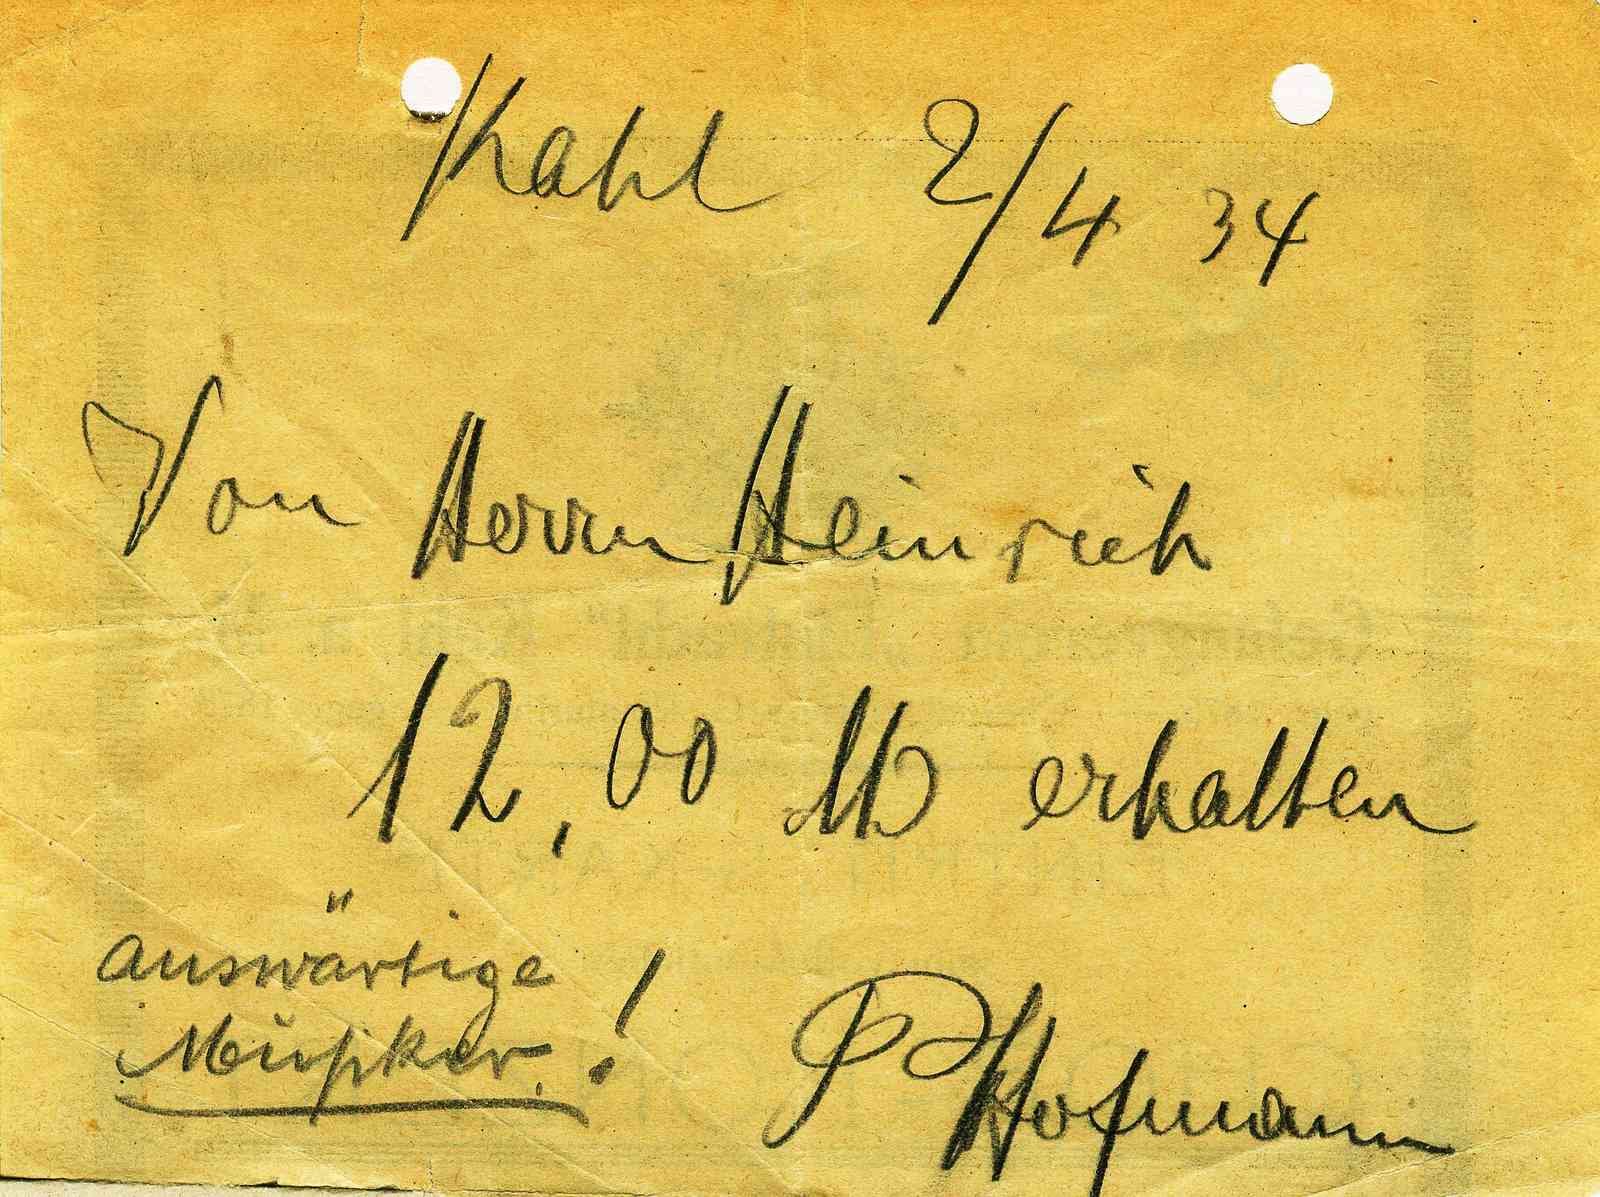 Kahl 2/4 34
Von Herrn Heinrich
12,00 M erhalten
auswärtige
Musiker. !
P Hofmann